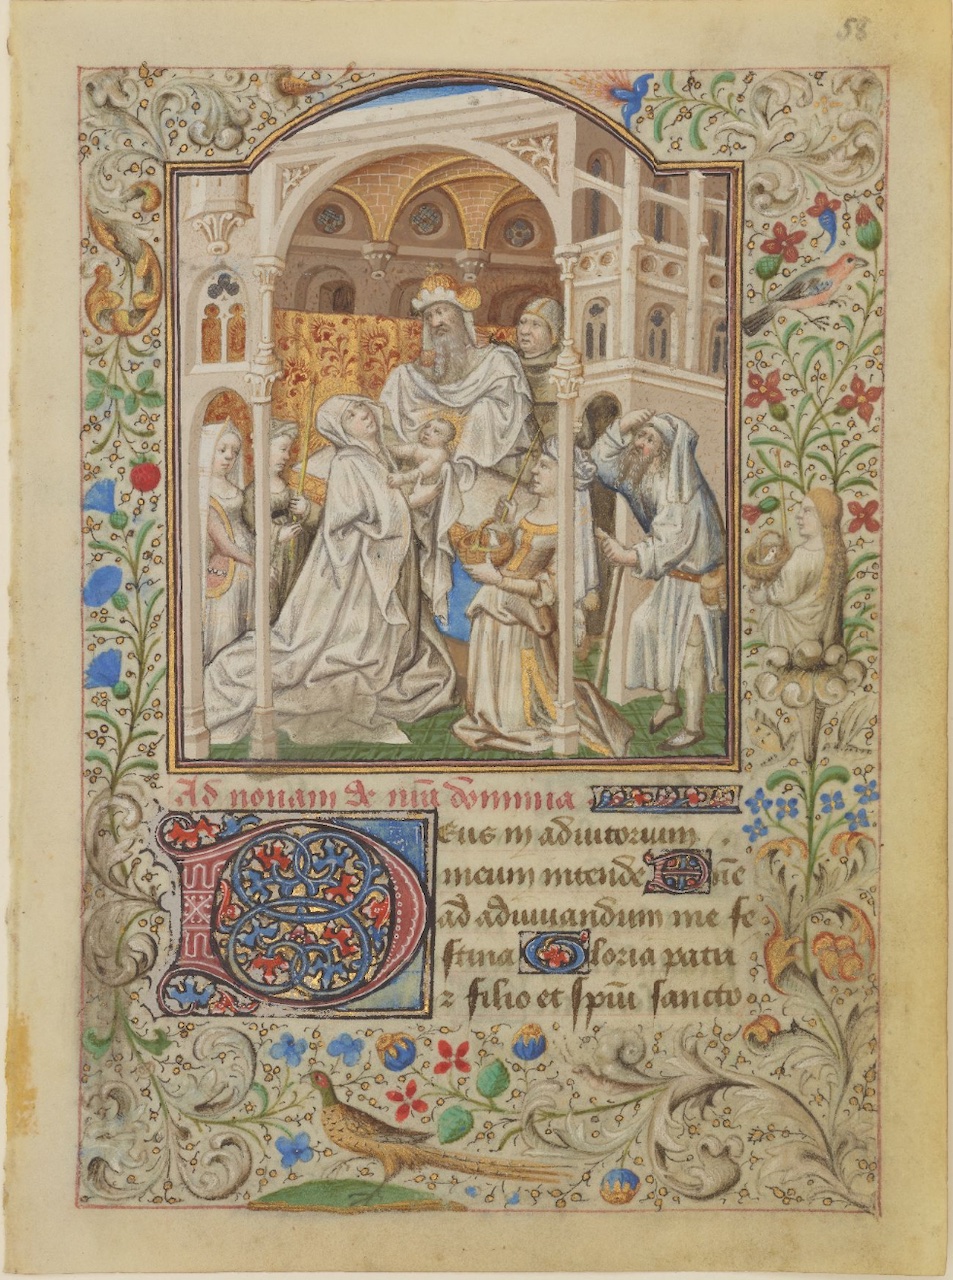 58
Ad nonam de nr̄a domina
Deus in adiutorium
meum intende Dn̄e
ad adiuuandum me fe
stina Gloria patri
⁊ filio et spūi sancto